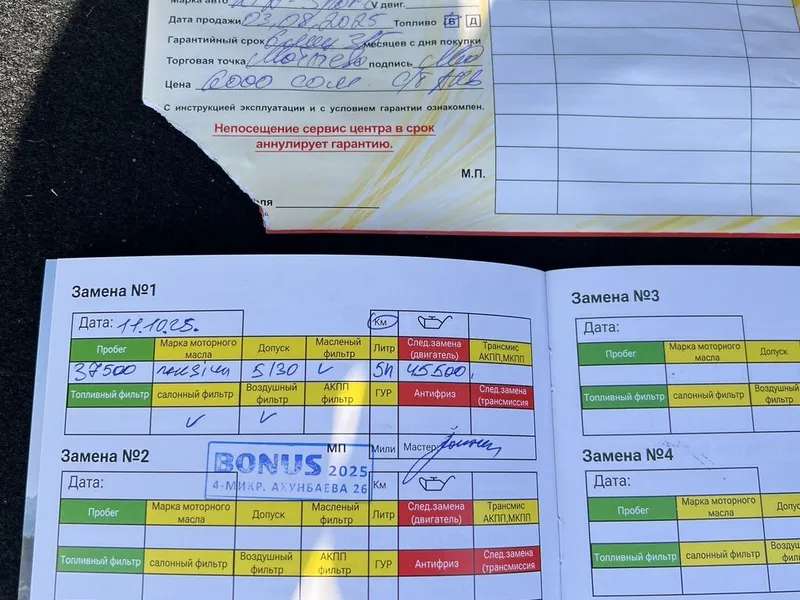 Марка авто V двиг.
Дата продажи 03.08.2025 Топливо Б Д
Гарантийный срок месяцев с дня покупки
Торговая точка подпись
Цена 6000 сом.
С инструкцией эксплуатации и с условием гарантии ознакомлен.
Непосещение сервис центра в срок
аннулирует гарантию.
М.П.
Замена №1
Дата: 11.10.25. Км
Пробег Марка моторного масла Допуск Масленый фильтр Литр След.замена (двигатель) Трансмис АКПП,МКПП
37500 5/30 5л 45500
Топливный фильтр салонный фильтр Воздушный фильтр АКПП фильтр ГУР Антифриз След.замена (трансмиссия
МП Мили Мастер:
BONUS 2025
4-МИКР. АХУНБАЕВА 26
Замена №2
Дата: Км
Пробег Марка моторного масла Допуск Масленый фильтр Литр След.замена (двигатель) Трансмис АКПП,МКПП
Топливный фильтр салонный фильтр Воздушный фильтр АКПП фильтр ГУР Антифриз След.замена (трансмиссия
Замена №3
Дата:
Пробег Марка моторного масла Допуск
Топливный фильтр салонный фильтр Воздушный фильтр
Замена №4
Дата:
Пробег Марка моторного масла
Топливный фильтр салонный фильтр